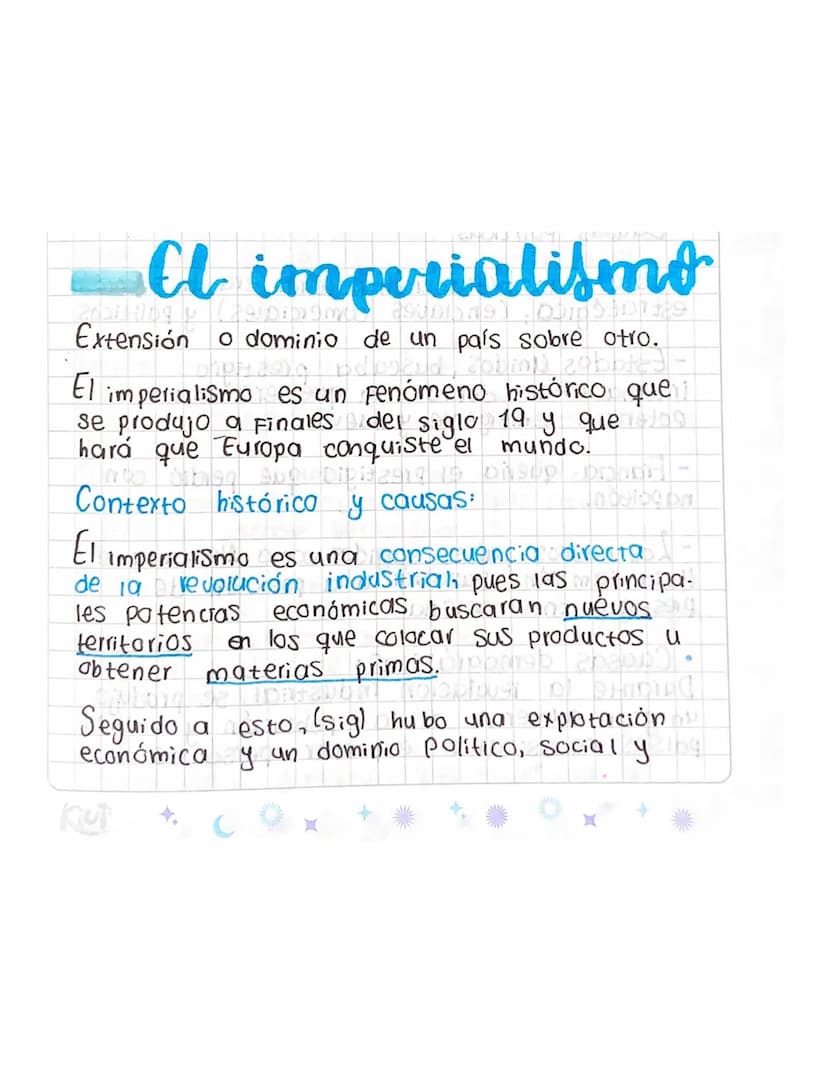 El imperialismo
Extensión o dominio de un país sobre otro.
El imperialismo es un fenómeno histórico que
se produjo a finales del siglo 19 y que
hará que Europa conquiste el mundo.
Contexto histórico y causas:
El imperialismo es una consecuencia directa
de la revolución industrial, pues las principa-
les potencias económicas buscaran nuevos
territorios en los que colocar sus productos u
obtener materias primas.
Seguido a esto, (sig) hubo una explotación
económica y un dominio político, social y
Kiut